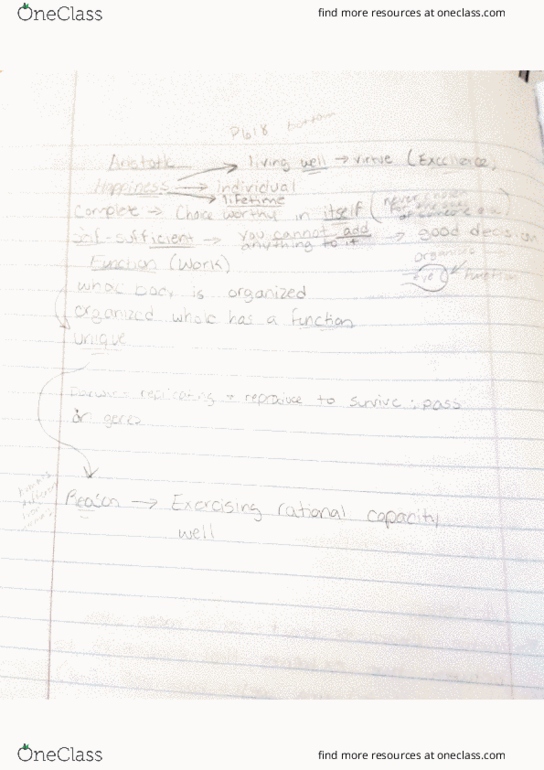 OneClass find more resources at oneclass.com
Pg18 bottom
Aristotle living well → virtue (Excellence)
Happiness → individual
lifetime
Complete → Choice worthy in itself (never chosen for the sake of someone else)
self-sufficient → you cannot add anything to it → good decision
organized
Function (Work) eye function
whole body is organized
organized whole has a function
unique
replicating = reproduce to survive; pass
on genes
Reason → Exercising rational capacity
well
OneClass find more resources at oneclass.com